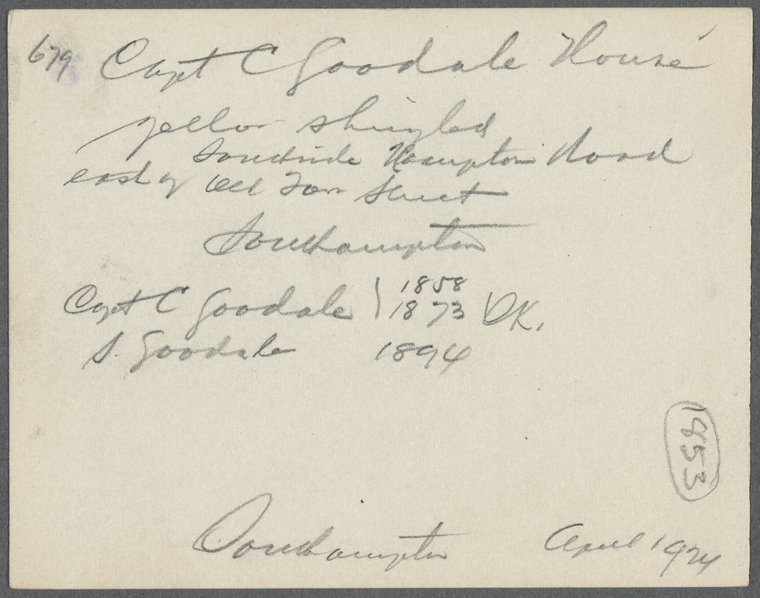 679 Capt C Goodale House
yellow shingled
Southside Hampton Road
east of Old Town Street
Southampton
Capt C Goodale } 1858
1873 } OK.
S. Goodale 1894
1853
Southampton April 1924